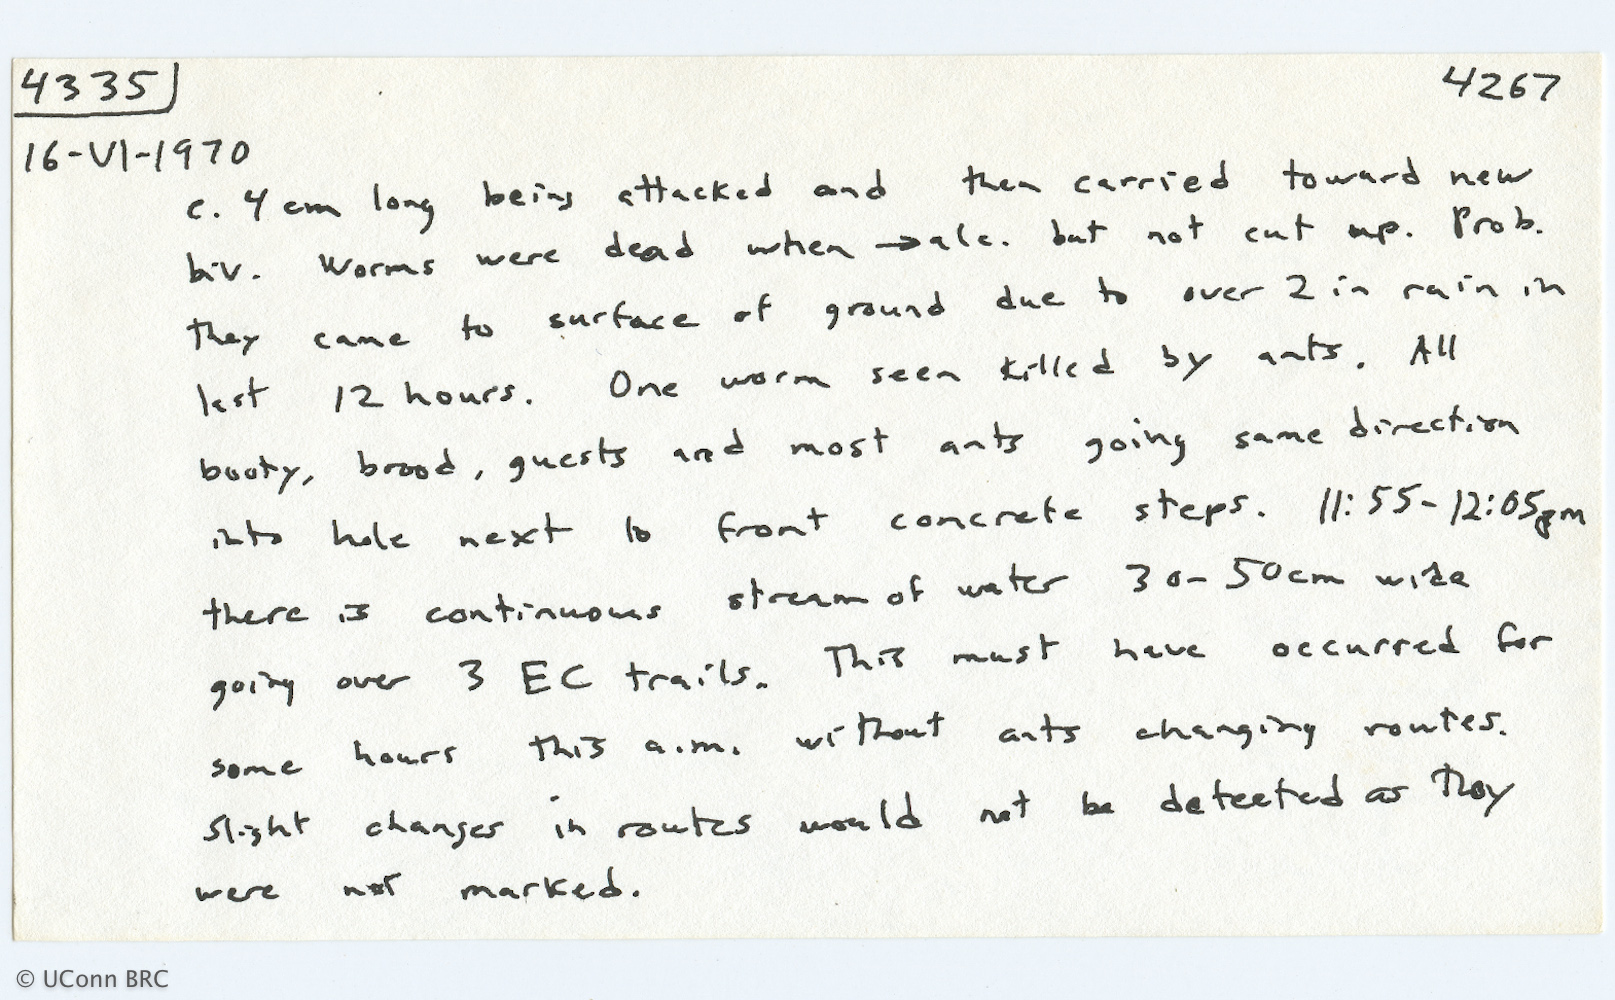 4335 4267
16-VI-1970
c. 4 cm long being attacked and then carried toward new
biv. Worms were dead when →alc. but not cut up. Prob.
they came to surface of ground due to over 2 in rain in
last 12 hours. One worm seen killed by ants. All
booty, brood, guests and most ants going same direction
into hole next to front concrete steps. 11:55-12:05pm
there is continuous stream of water 30-50cm wide
going over 3 EC trails. This must have occurred for
some hours this a.m. without ants changing routes.
Slight changes in routes would not be detected as they
were not marked.
© UConn BRC